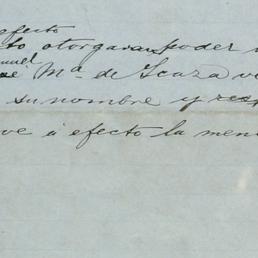 efecto
to otorgaran poder
nuel
Mª de Icaza v
su nombre y res
ve á efecto la men